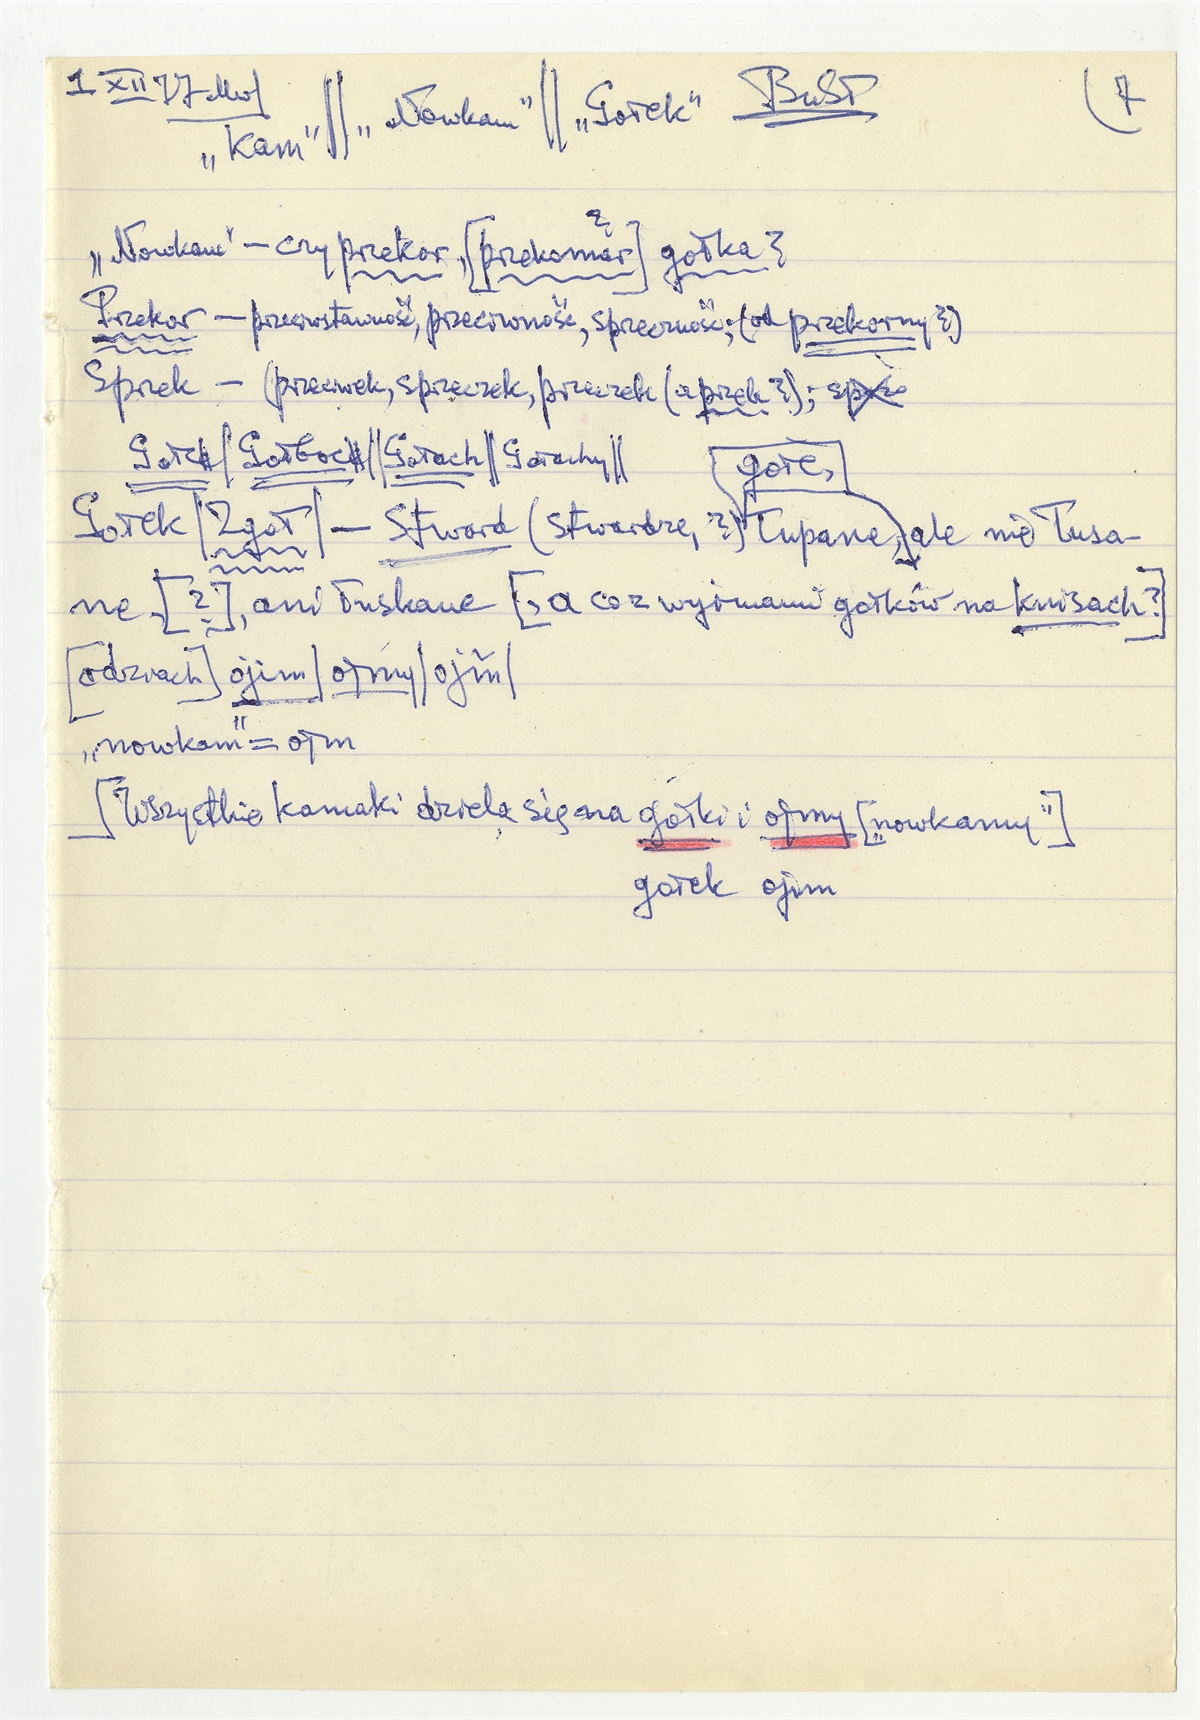 1 XII 77 Mol
„Kam” || „Nowkam” || „Gołek” BuSł (7
„Nowkam” — czy przekor, [przekomár] gołka?
Przekor — przeciwstawność, przeciwność, sprzeczność; (od przekorny?)
Sprzek — (przeciwek, sprzeczek, przeczek (a przek?);
Gołek / || Gołach || Gołachy ||
gołe,
Gołek / Zgoł / — Stward (stwardze, ?) łupane, ale nie łusa-
ne [?], ani łuskane [, a co z wyjmami gołków na knisach?]
ojim / ojmy / ojm /
„nowkam” = ojm
[Wszystkie kamaki dzielą się na gołki i ojmy [„nowkamy”]
gołek ojim